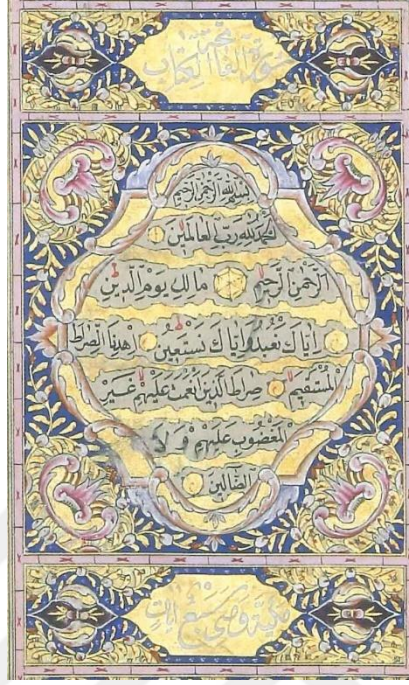 سورة الفاتحة الكتاب
بسم الله الرحمن الرحيم
الحمد لله رب العالمين
الرحمن الرحيم مالك يوم الدين
إياك نعبد وإياك نستعين اهدنا الصراط
المستقيم صراط الذين أنعمت عليهم غير
المغضوب عليهم ولا
الضالين
مكية وهي سبع آيات